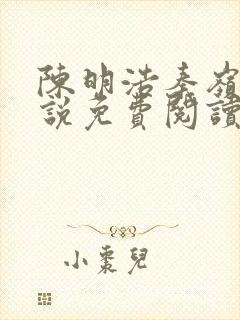 陳明浩秦嶺
說免費閱讀
小棗兒